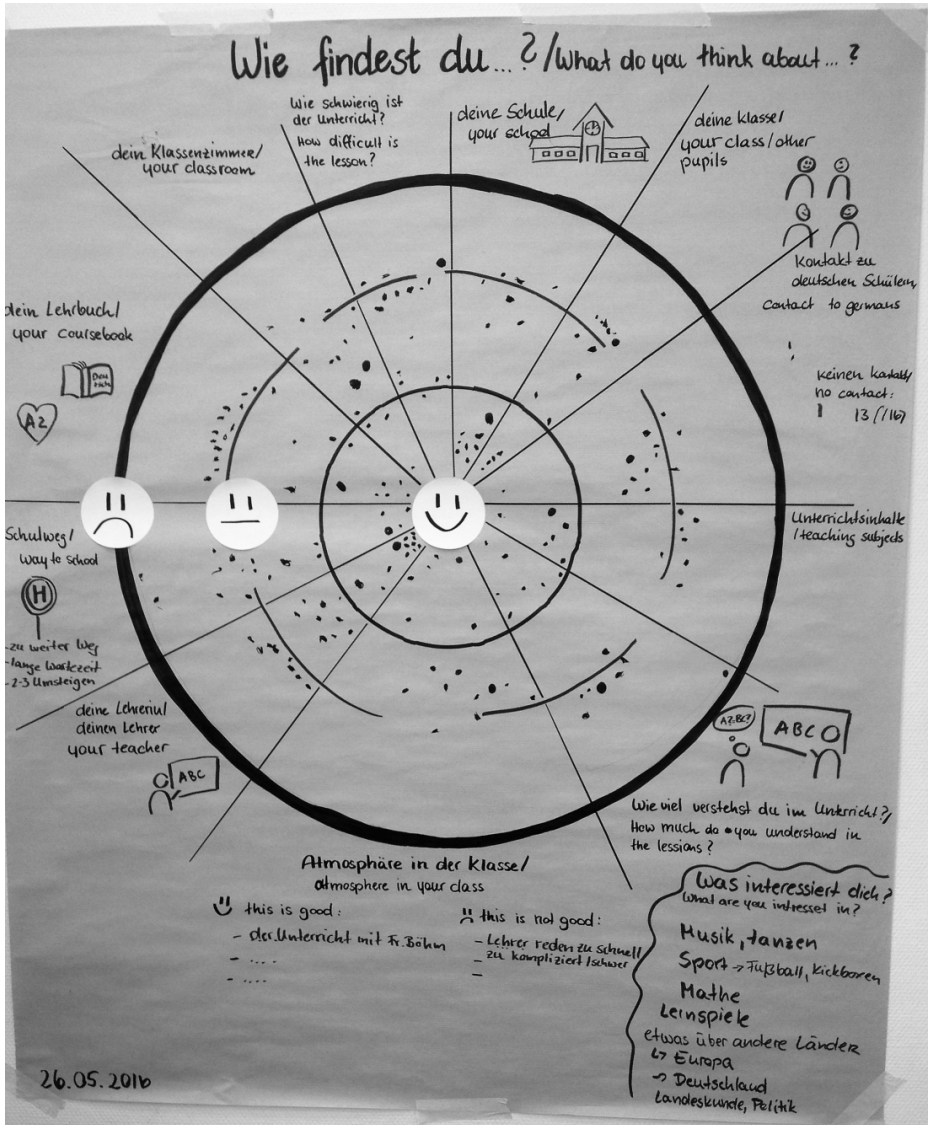 Wie findest du...?/What do you think about...?
Wie schwierig ist
der Unterricht?
How difficult is
the lesson?
deine Schule/
your school
deine Klasse/
your class/other
pupils
dein Klassenzimmer/
your classroom
Kontakt zu
deutschen Schülern,
contact to germans
dein Lehrbuch/
your coursebook
Deu
tsch
A2
keinen Kontakt/
no contact:
13 (/16)
Unterrichtsinhalte
/teaching subjects
Schulweg/
way to school
H
-zu weiter Weg
-lange Wartezeit
-2-3 Umsteigen
deine Lehrerin/
deinen Lehrer
your teacher
ABC
A?BC?
ABC
Wie viel verstehst du im Unterricht?/
How much do you understand in
the lessions?
Atmosphäre in der Klasse/
atmosphere in your class
this is good:
- der Unterricht mit Fr. Böhm
- ....
- ....
this is not good:
- Lehrer reden zu schnell/
- zu kompliziert/schwer
-
Was interessiert dich?
What are you intresset in?
Musik, tanzen
Sport → Fußball, Kickboxen
Mathe
Lernspiele
etwas über andere Länder
↳ Europa
→ Deutschland
Landeskunde, Politik
26.05.2016